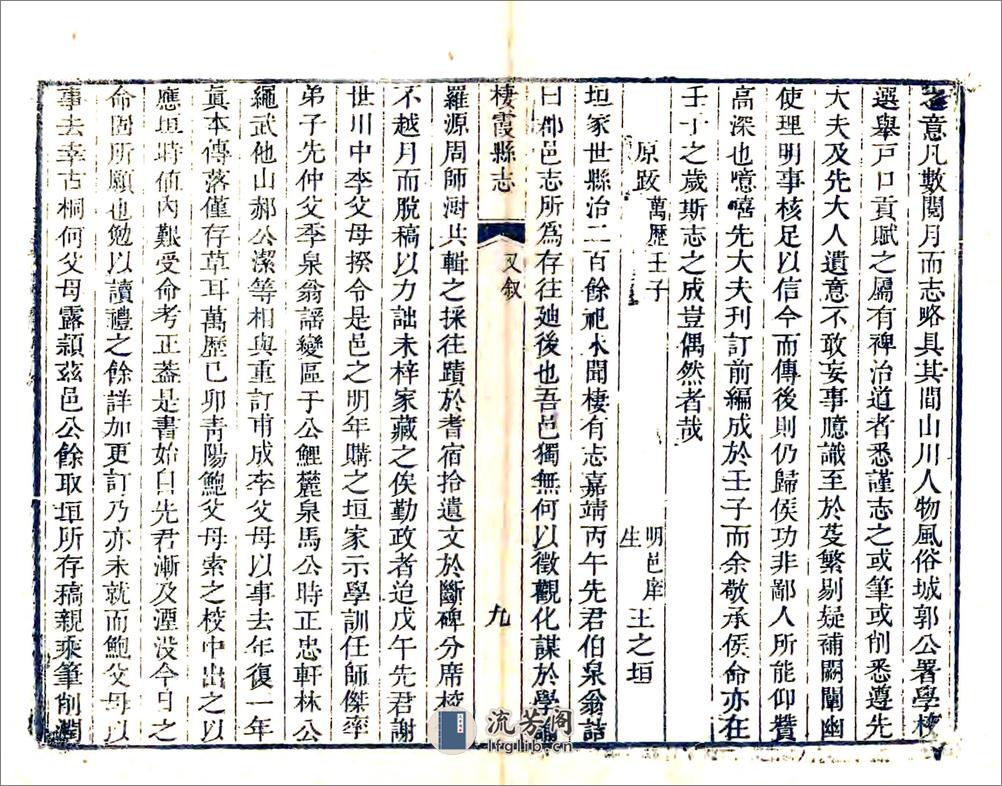 之意凡數閱月而志略具其間山川人物風俗城郭公署學校
選舉戸口貢賦之屬有裨治道者悉謹志之或筆或削悉遵先
大夫及先大人遺意不敢妄事臆識至於芟繁剔疑補闕闡幽
使理明事核足以信今而傳後則仍歸侯功非鄙人所能仰贊
高深也噫嘻先大夫刊訂前編成於壬子而余敬承侯命亦在
壬子之歲斯志之成豈偶然者哉
原跋萬歷壬子 明邑庠生王之垣
垣家世縣治二百餘祀未聞棲有志嘉靖丙午先君伯泉翁詰
曰郡邑志所為存往廸後也吾邑獨無何以徵觀化謀於學諭
棲霞縣志 又叙 九
羅源周師澍共輯之採往蹟於耆宿拾遺文於斷碑分席校
不越月而脫稿以力詘未梓家藏之俟勤政者迨戊午先君謝
世川中李父母揆令是邑之明年購之垣家示學訓任師傑率
弟子先仲父季泉翁謡變區于公鯉麓泉馬公時正忠軒林公
繩武他山郝公潔等相與重訂甫成李父母以事去年復一年
眞本傳落僅存草耳萬歷已卯靑陽鮑父母索之校中出之以
應垣時値內艱受命考正蓋是書始自先君漸及湮没今日之
命固所願也勉以讀禮之餘詳加更訂乃亦未就而鮑父母以
事去幸古桐何父母露纇玆邑公餘取垣所存稿親乘筆削潤
流芳阁
lfglib.cn